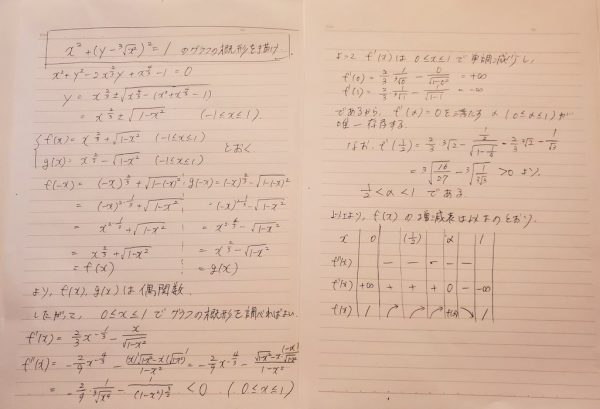 x² + (y - ³√x²)² = 1 のグラフの概形を描け.
x² + y² - 2x^{2/3}y + x^{4/3} - 1 = 0
y = x^{2/3} ± √(x^{4/3} - (x² + x^{4/3} - 1))
= x^{2/3} ± √(1-x²) (-1≤x≤1).
{ f(x) = x^{2/3} + √(1-x²) (-1≤x≤1)
g(x) = x^{2/3} - √(1-x²) (-1≤x≤1) とおく
f(-x) = (-x)^{2/3} + √(1-(-x)²) g(-x) = (-x)^{2/3} - √(1-(-x)²)
= (-x)^{2·1/3} + √(1-x²) = (-x)^{2·1/3} - √(1-x²)
= x^{2·1/3} + √(1-x²) = x^{2·1/3} - √(1-x²)
= x^{2/3} + √(1-x²) = x^{2/3} - √(1-x²)
= f(x) = g(x)
より, f(x), g(x) は偶関数.
したがって, 0≤x≤1 でグラフの概形を調べればよい.
f'(x) = 2/3 x^{-1/3} - x/√(1-x²)
f''(x) = -2/9 x^{-4/3} - ((x)'√(1-x²) - x(√(1-x²))')/(1-x²) = -2/9 x^{-4/3} - (√(1-x²) - x·(-x)/√(1-x²))/(1-x²)
= -2/9 · 1/³√x⁴ - 1/(1-x²)^{3/2} < 0 (0≤x≤1)
よって f'(x) は 0≤x≤1 で単調減少し,
f'(0) = 2/3 · 1/³√0 - 0/√(1-0²) = +∞
f'(1) = 2/3 · 1/³√1 - 1/√(1-1) = -∞
であるから, f'(α) = 0 を満たす α (0≤α≤1) が
唯一存在する.
なお, f'(1/2) = 2/3 ³√2 - (1/2)/√(1-1/4) = 2/3 ³√2 - 1/√3
= ³√(16/27) - ³√(1/(3√3)) > 0 より,
1/2 < α < 1 である
以上より, f(x) の増減表は以下のとおり.
x 0 (1/2) α 1
f''(x) - - - - -
f'(x) +∞ + + + 0 - -∞
f(x) 1 f(α) 1